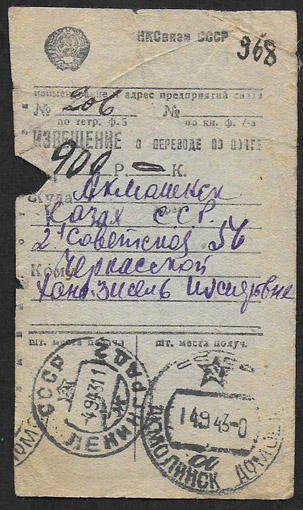 НКСвязи СССР
968
наименование и адрес предприятий связи
№ 206 №
по тетр. ф.5 по кн. ф.
ИЗВЕЩЕНИЕ О ПЕРЕВОДЕ ПО ПОЧТЕ
900 Р. — К.
Куда Акмолинск
Казах С.С.Р.
2 Советская 56
Кому Черкасской
шт. места подачи шт. места получ.
СССР ЛЕНИНГРАД
4943
14.9 43-0
АКМОЛИНСК